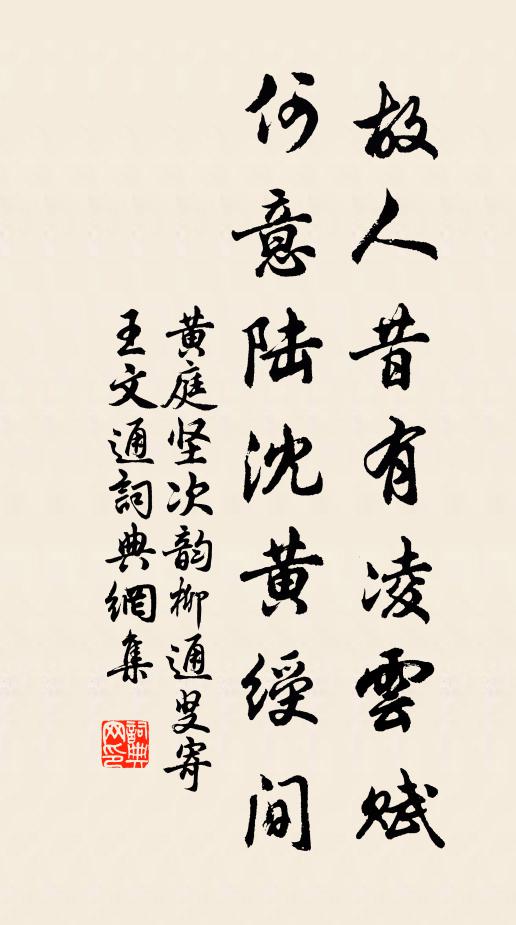 故人昔有凌雲赋
何意陆沈黄綬间
黄庭坚次韵柳通叟寄
王文通詞典網集
詞典網印